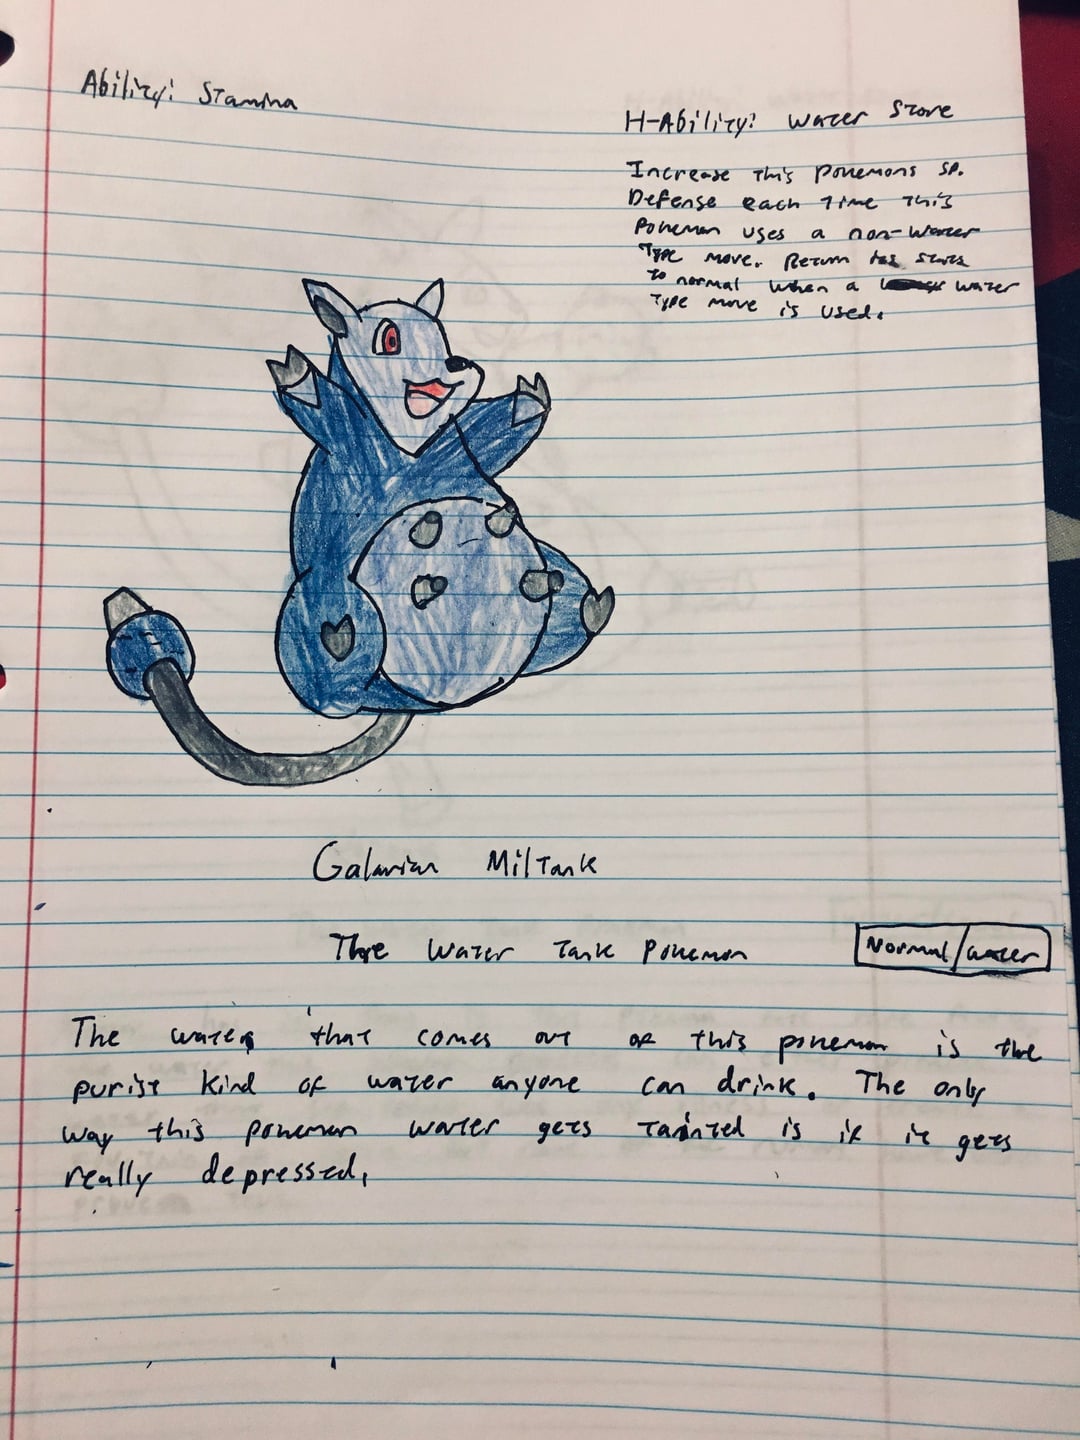 Ability: Stamina
H-Ability: Water Store
Increase this pokemons sp.
Defense each time this
Pokemon uses a non-water
Type move. Return stats
to normal when a water
Type move is used.
Galarian Miltank
The Water Tank Pokemon
Normal/water
The water that comes out of this pokemon is the
purist kind of water anyone can drink. The only
way this pokemon water gets tainted is if it gets
really depressed.